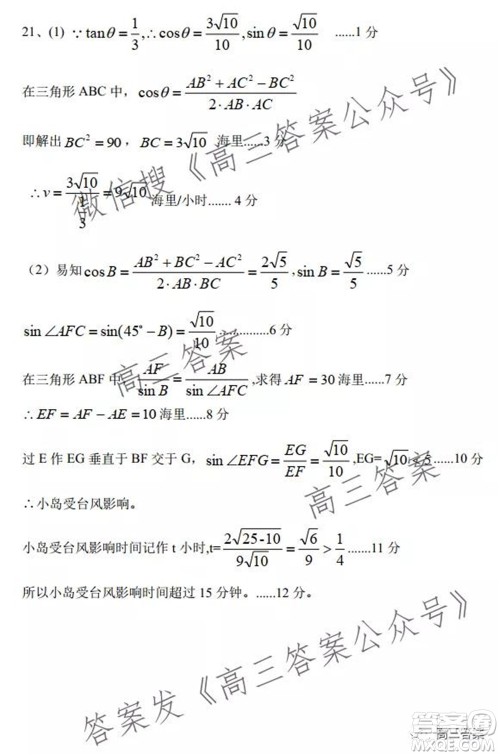 21、(1) ∵tanθ=1/3,∴cosθ=3√10/10,sinθ=√10/10 ......1 分
在三角形 ABC 中，cosθ=(AB²+AC²−BC²)/(2·AB·AC)
即解出 BC²=90，BC=3√10 海里......3 分
∴v=(3√10)/(1/3)=9√10 海里/小时....... 4 分
（2）易知cosB=(AB²+BC²−AC²)/(2·AB·BC)=2√5/5,sinB=√5/5 ......5 分
sin∠AFC=sin(45°−B)=√10/10............6 分
在三角形 ABF 中，AF/sinB=AB/sin∠AFC,求得 AF=30海里......7 分
∴EF=AF−AE=10海里......8 分
过 E 作 EG 垂直于 BF 交于 G，sin∠EFG=EG/EF=√10/10,EG=√10<5......10 分
∴小岛受台风影响。
小岛受台风影响时间记作 t 小时,t=2√(25-10)/(9√10)=√6/9>1/4 .......11 分
所以小岛受台风影响时间超过 15 分钟。......12 分。
微信搜《高三答案公众号》
高三答案
高三答案
答案发《高三答案公众号》
高三答案